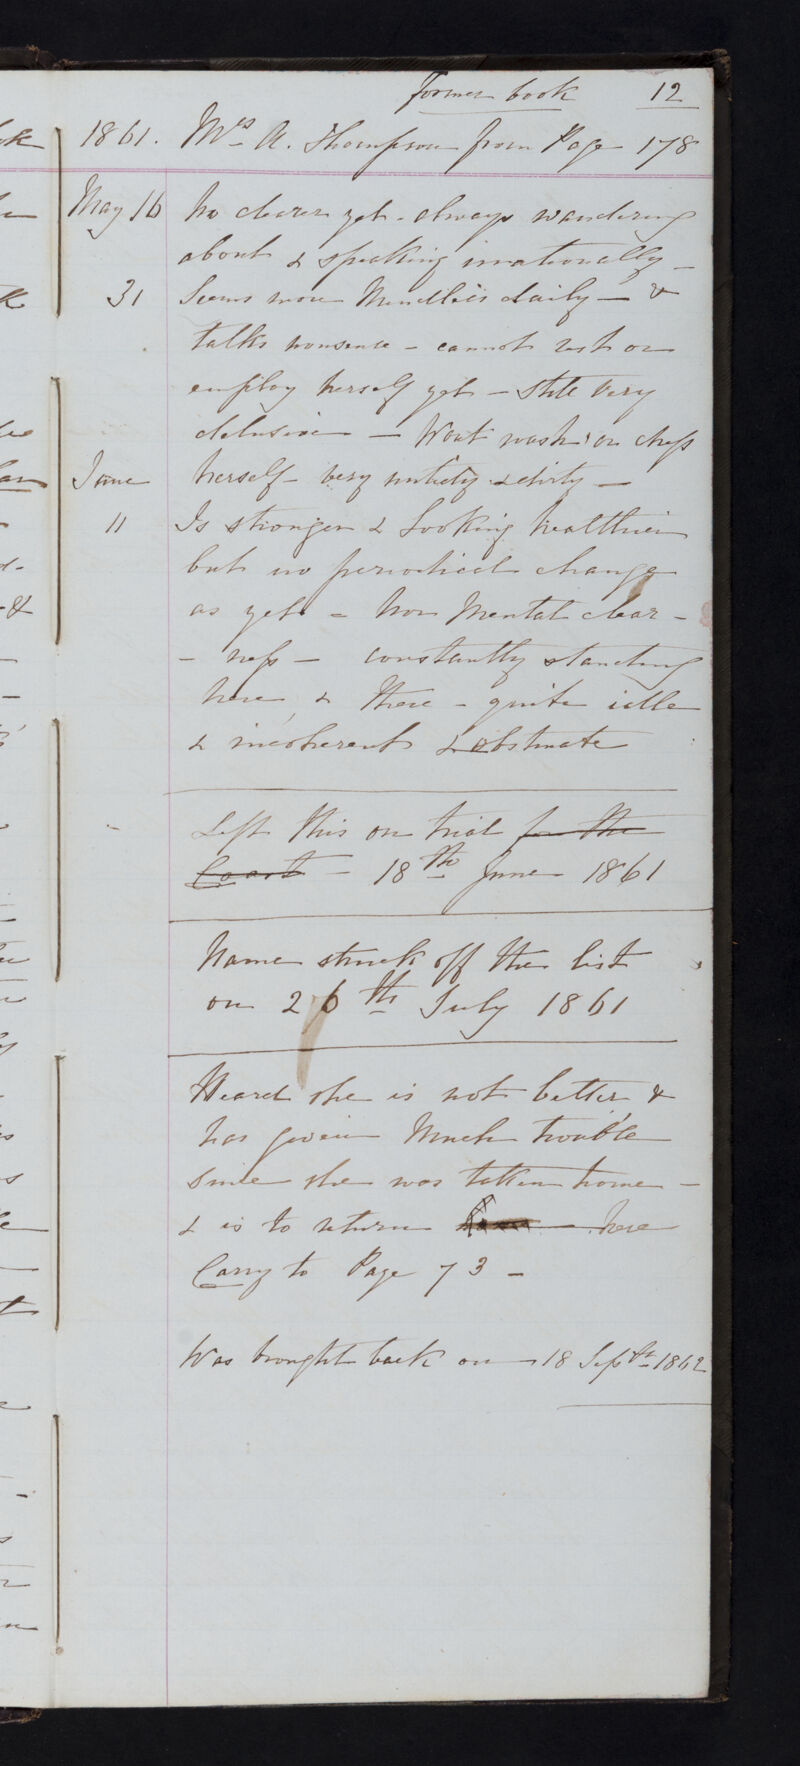 Former book 12
1861. Mrs A. Thompson from Page 178
May 16 No clearer yet - always wandering
about & speaking irrationally -
31 Seems more Mindless daily - &
talks nonsense - cannot rest or
employ herself yet - still very
delusive - Wont wash or dress
June herself - very untidy & dirty -
11 Is stronger & Looking healthier
but no periodical change
as yet - nor Mental clear -
- ness - constantly standing
here & there - quite idle
& incoherent & obstinate
Left this on trial for the
Coast - 18th June 1861
Name struck off the list
on 26th July 1861
Heard she is not better &
has given Much trouble
since she was taken home -
& is to return here
Carry to Page 73 -
Was brought back on 18 Sept 1862